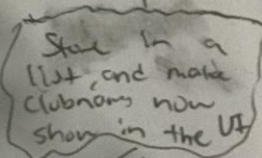 Store in a
list, and make
clubnoms now
show in the UI